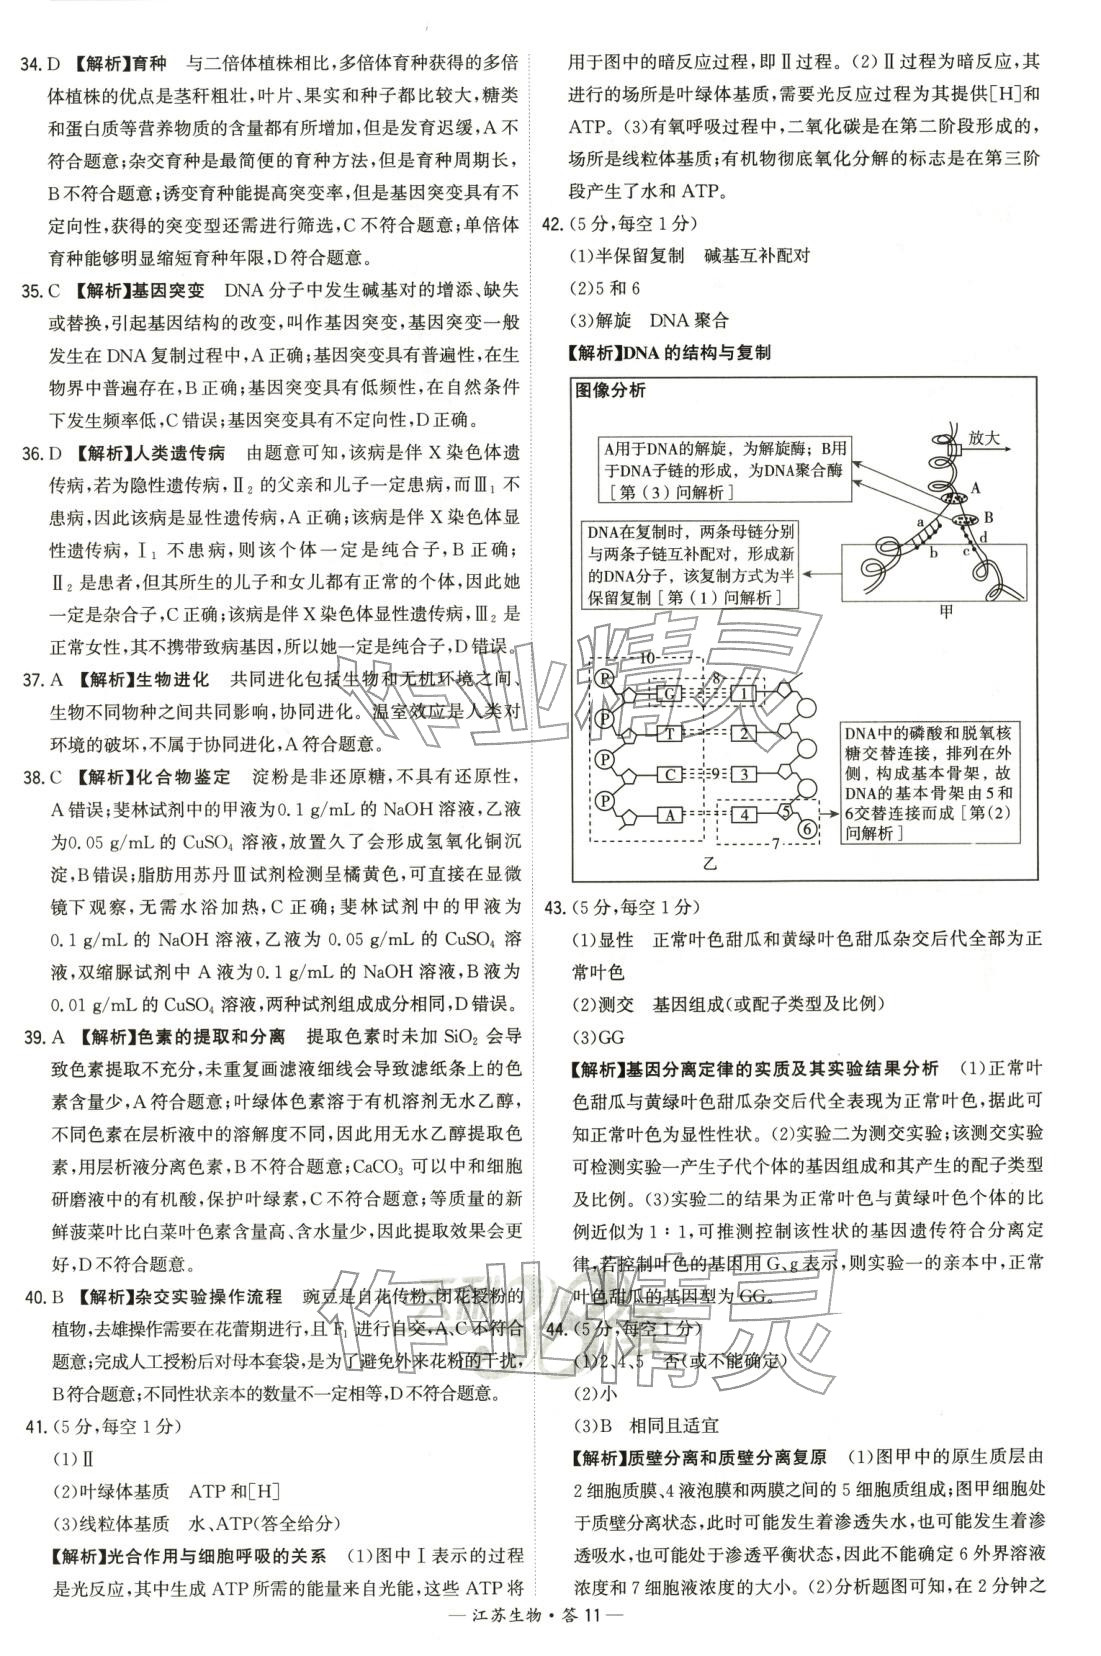 34. D 【解析】育种 与二倍体植株相比,多倍体育种获得的多倍
体植株的优点是茎秆粗壮,叶片、果实和种子都比较大,糖类
和蛋白质等营养物质的含量都有所增加,但是发育迟缓,A不
符合题意;杂交育种是最简便的育种方法,但是育种周期长,
B不符合题意;诱变育种能提高突变率,但是基因突变具有不
定向性,获得的突变型还需进行筛选,C不符合题意;单倍体
育种能够明显缩短育种年限,D符合题意。
35. C 【解析】基因突变 DNA分子中发生碱基对的增添、缺失
或替换,引起基因结构的改变,叫作基因突变,基因突变一般
发生在DNA复制过程中,A正确;基因突变具有普遍性,在生
物界中普遍存在,B正确;基因突变具有低频性,在自然条件
下发生频率低,C错误;基因突变具有不定向性,D正确。
36. D 【解析】人类遗传病 由题意可知,该病是伴X染色体遗
传病,若为隐性遗传病,Ⅱ₂的父亲和儿子一定患病,而Ⅲ₁不
患病,因此该病是显性遗传病,A正确;该病是伴X染色体显
性遗传病,Ⅰ₁不患病,则该个体一定是纯合子,B正确;
Ⅱ₂是患者,但其所生的儿子和女儿都有正常的个体,因此她
一定是杂合子,C正确;该病是伴X染色体显性遗传病,Ⅲ₂是
正常女性,其不携带致病基因,所以她一定是纯合子,D错误。
37. A 【解析】生物进化 共同进化包括生物和无机环境之间、
生物不同物种之间共同影响,协同进化。温室效应是人类对
环境的破坏,不属于协同进化,A符合题意。
38. C 【解析】化合物鉴定 淀粉是非还原糖,不具有还原性,
A错误;斐林试剂中的甲液为0.1 g/mL的NaOH溶液,乙液
为0.05 g/mL的CuSO₄溶液,放置久了会形成氢氧化铜沉
淀,B错误;脂肪用苏丹Ⅲ试剂检测呈橘黄色,可直接在显微
镜下观察,无需水浴加热,C正确;斐林试剂中的甲液为
0.1 g/mL的NaOH溶液,乙液为0.05 g/mL的CuSO₄溶
液,双缩脲试剂中A液为0.1 g/mL的NaOH溶液,B液为
0.01 g/mL的CuSO₄溶液,两种试剂组成成分相同,D错误。
39. A 【解析】色素的提取和分离 提取色素时未加SiO₂会导
致色素提取不充分,未重复画滤液细线会导致滤纸条上的色
素含量少,A符合题意;叶绿体色素溶于有机溶剂无水乙醇,
不同色素在层析液中的溶解度不同,因此用无水乙醇提取色
素,用层析液分离色素,B不符合题意;CaCO₃可以中和细胞
研磨液中的有机酸,保护叶绿素,C不符合题意;等质量的新
鲜菠菜叶比白菜叶色素含量高、含水量少,因此提取效果会更
好,D不符合题意。
40. B 【解析】杂交实验操作流程 豌豆是自花传粉、闭花授粉的
植物,去雄操作需要在花蕾期进行,且F₁进行自交,A、C不符合
题意;完成人工授粉后对母本套袋,是为了避免外来花粉的干扰,
B符合题意;不同性状亲本的数量不一定相等,D不符合题意。
41. (5分,每空1分)
(1)Ⅱ
(2)叶绿体基质 ATP和[H]
(3)线粒体基质 水、ATP(答全给分)
【解析】光合作用与细胞呼吸的关系 (1)图中Ⅰ表示的过程
是光反应,其中生成ATP所需的能量来自光能,这些ATP将
用于图中的暗反应过程,即Ⅱ过程。(2)Ⅱ过程为暗反应,其
进行的场所是叶绿体基质,需要光反应过程为其提供[H]和
ATP。(3)有氧呼吸过程中,二氧化碳是在第二阶段形成的,
场所是线粒体基质;有机物彻底氧化分解的标志是在第三阶
段产生了水和ATP。
42. (5分,每空1分)
(1)半保留复制 碱基互补配对
(2)5和6
(3)解旋 DNA聚合
【解析】DNA的结构与复制
图像分析
A用于DNA的解旋,为解旋酶;B用
于DNA子链的形成,为DNA聚合酶
[第(3)问解析]
放大
A
B
a
b
c
d
甲
DNA在复制时,两条母链分别
与两条子链互补配对,形成新
的DNA分子,该复制方式为半
保留复制[第(1)问解析]
10
P
8
G
1
P
T
2
P
C
9
3
P
A
4
5
6
7
乙
DNA中的磷酸和脱氧核
糖交替连接,排列在外
侧,构成基本骨架,故
DNA的基本骨架由5和
6交替连接而成[第(2)
问解析]
43. (5分,每空1分)
(1)显性 正常叶色甜瓜和黄绿叶色甜瓜杂交后代全部为正
常叶色
(2)测交 基因组成(或配子类型及比例)
(3)GG
【解析】基因分离定律的实质及其实验结果分析 (1)正常叶
色甜瓜与黄绿叶色甜瓜杂交后代全表现为正常叶色,据此可
知正常叶色为显性性状。(2)实验二为测交实验;该测交实验
可检测实验一产生子代个体的基因组成和其产生的配子类型
及比例。(3)实验二的结果为正常叶色与黄绿叶色个体的比
例近似为1∶1,可推测控制该性状的基因遗传符合分离定
律,若控制叶色的基因用G、g表示,则实验一的亲本中,正常
叶色甜瓜的基因型为GG。
44. (5分,每空1分)
(1)2、4、5 否(或不能确定)
(2)小
(3)B 相同且适宜
【解析】质壁分离和质壁分离复原 (1)图甲中的原生质层由
2细胞质膜、4液泡膜和两膜间的5细胞质组成;图甲细胞处
于质壁分离状态,此时可能发生着渗透失水,也可能发生着渗
透吸水,也可能处于渗透平衡状态,因此不能确定6外界溶液
浓度和7细胞液浓度的大小。(2)分析题图可知,在2分钟之
— 江苏生物·答11 —
作业精灵
作业精灵